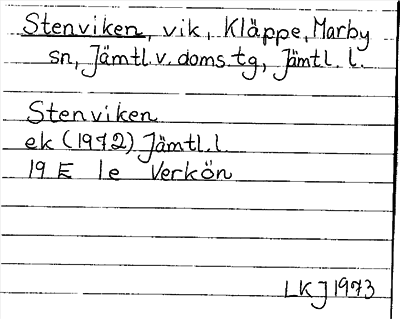 Stenviken, vik, Kläppe, Marby
sn, Jämtl. v. doms. tg, Jämtl. l.
Stenviken
ek (1972) Jämtl. l.
19 E 1e Verkön
LKJ 1973